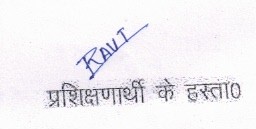 RAVI
प्रशिक्षणार्थी के हस्ता0